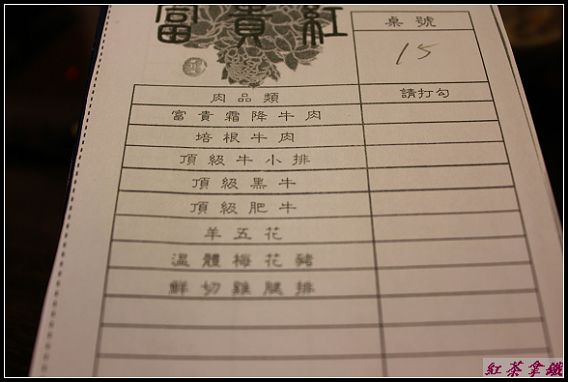 富貴紅
桌號
15
肉品類 請打勾
富貴霜降牛肉
培根牛肉
頂級牛小排
頂級黑牛
頂級肥牛
羊五花
溫體梅花豬
鮮切雞腿排
紅茶拿鐵